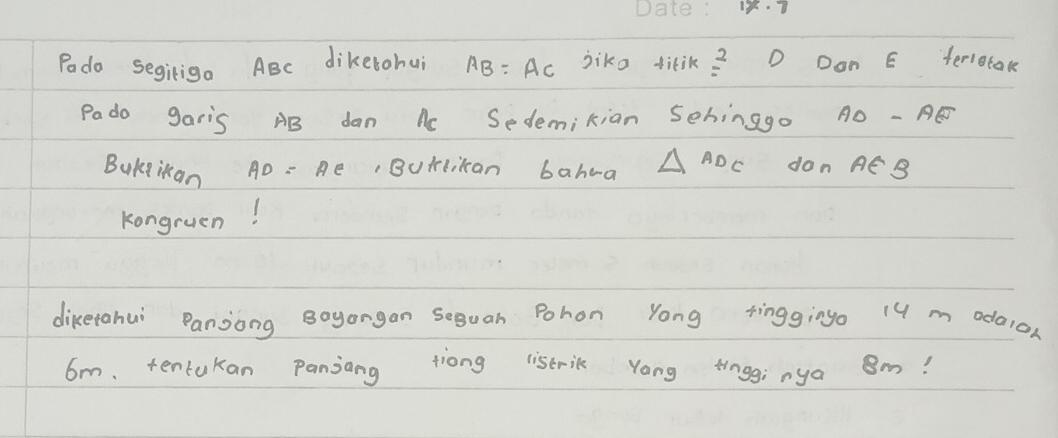 Date : IX.7
Pada segitiga ABC diketahui AB = AC jika titik2 D Dan E terletak
Pada garis AB dan AC Sedemikian Sehingga AD - AE
Buktikan AD = AE , Buktikan bahwa △ ADC dan AEB
kongruen !
diketahui Panjang Bayangan Sebuah Pohon Yang tingginya 14 m adalah
6m. tentukan Panjang tiang listrik Yang tingginya 8m !